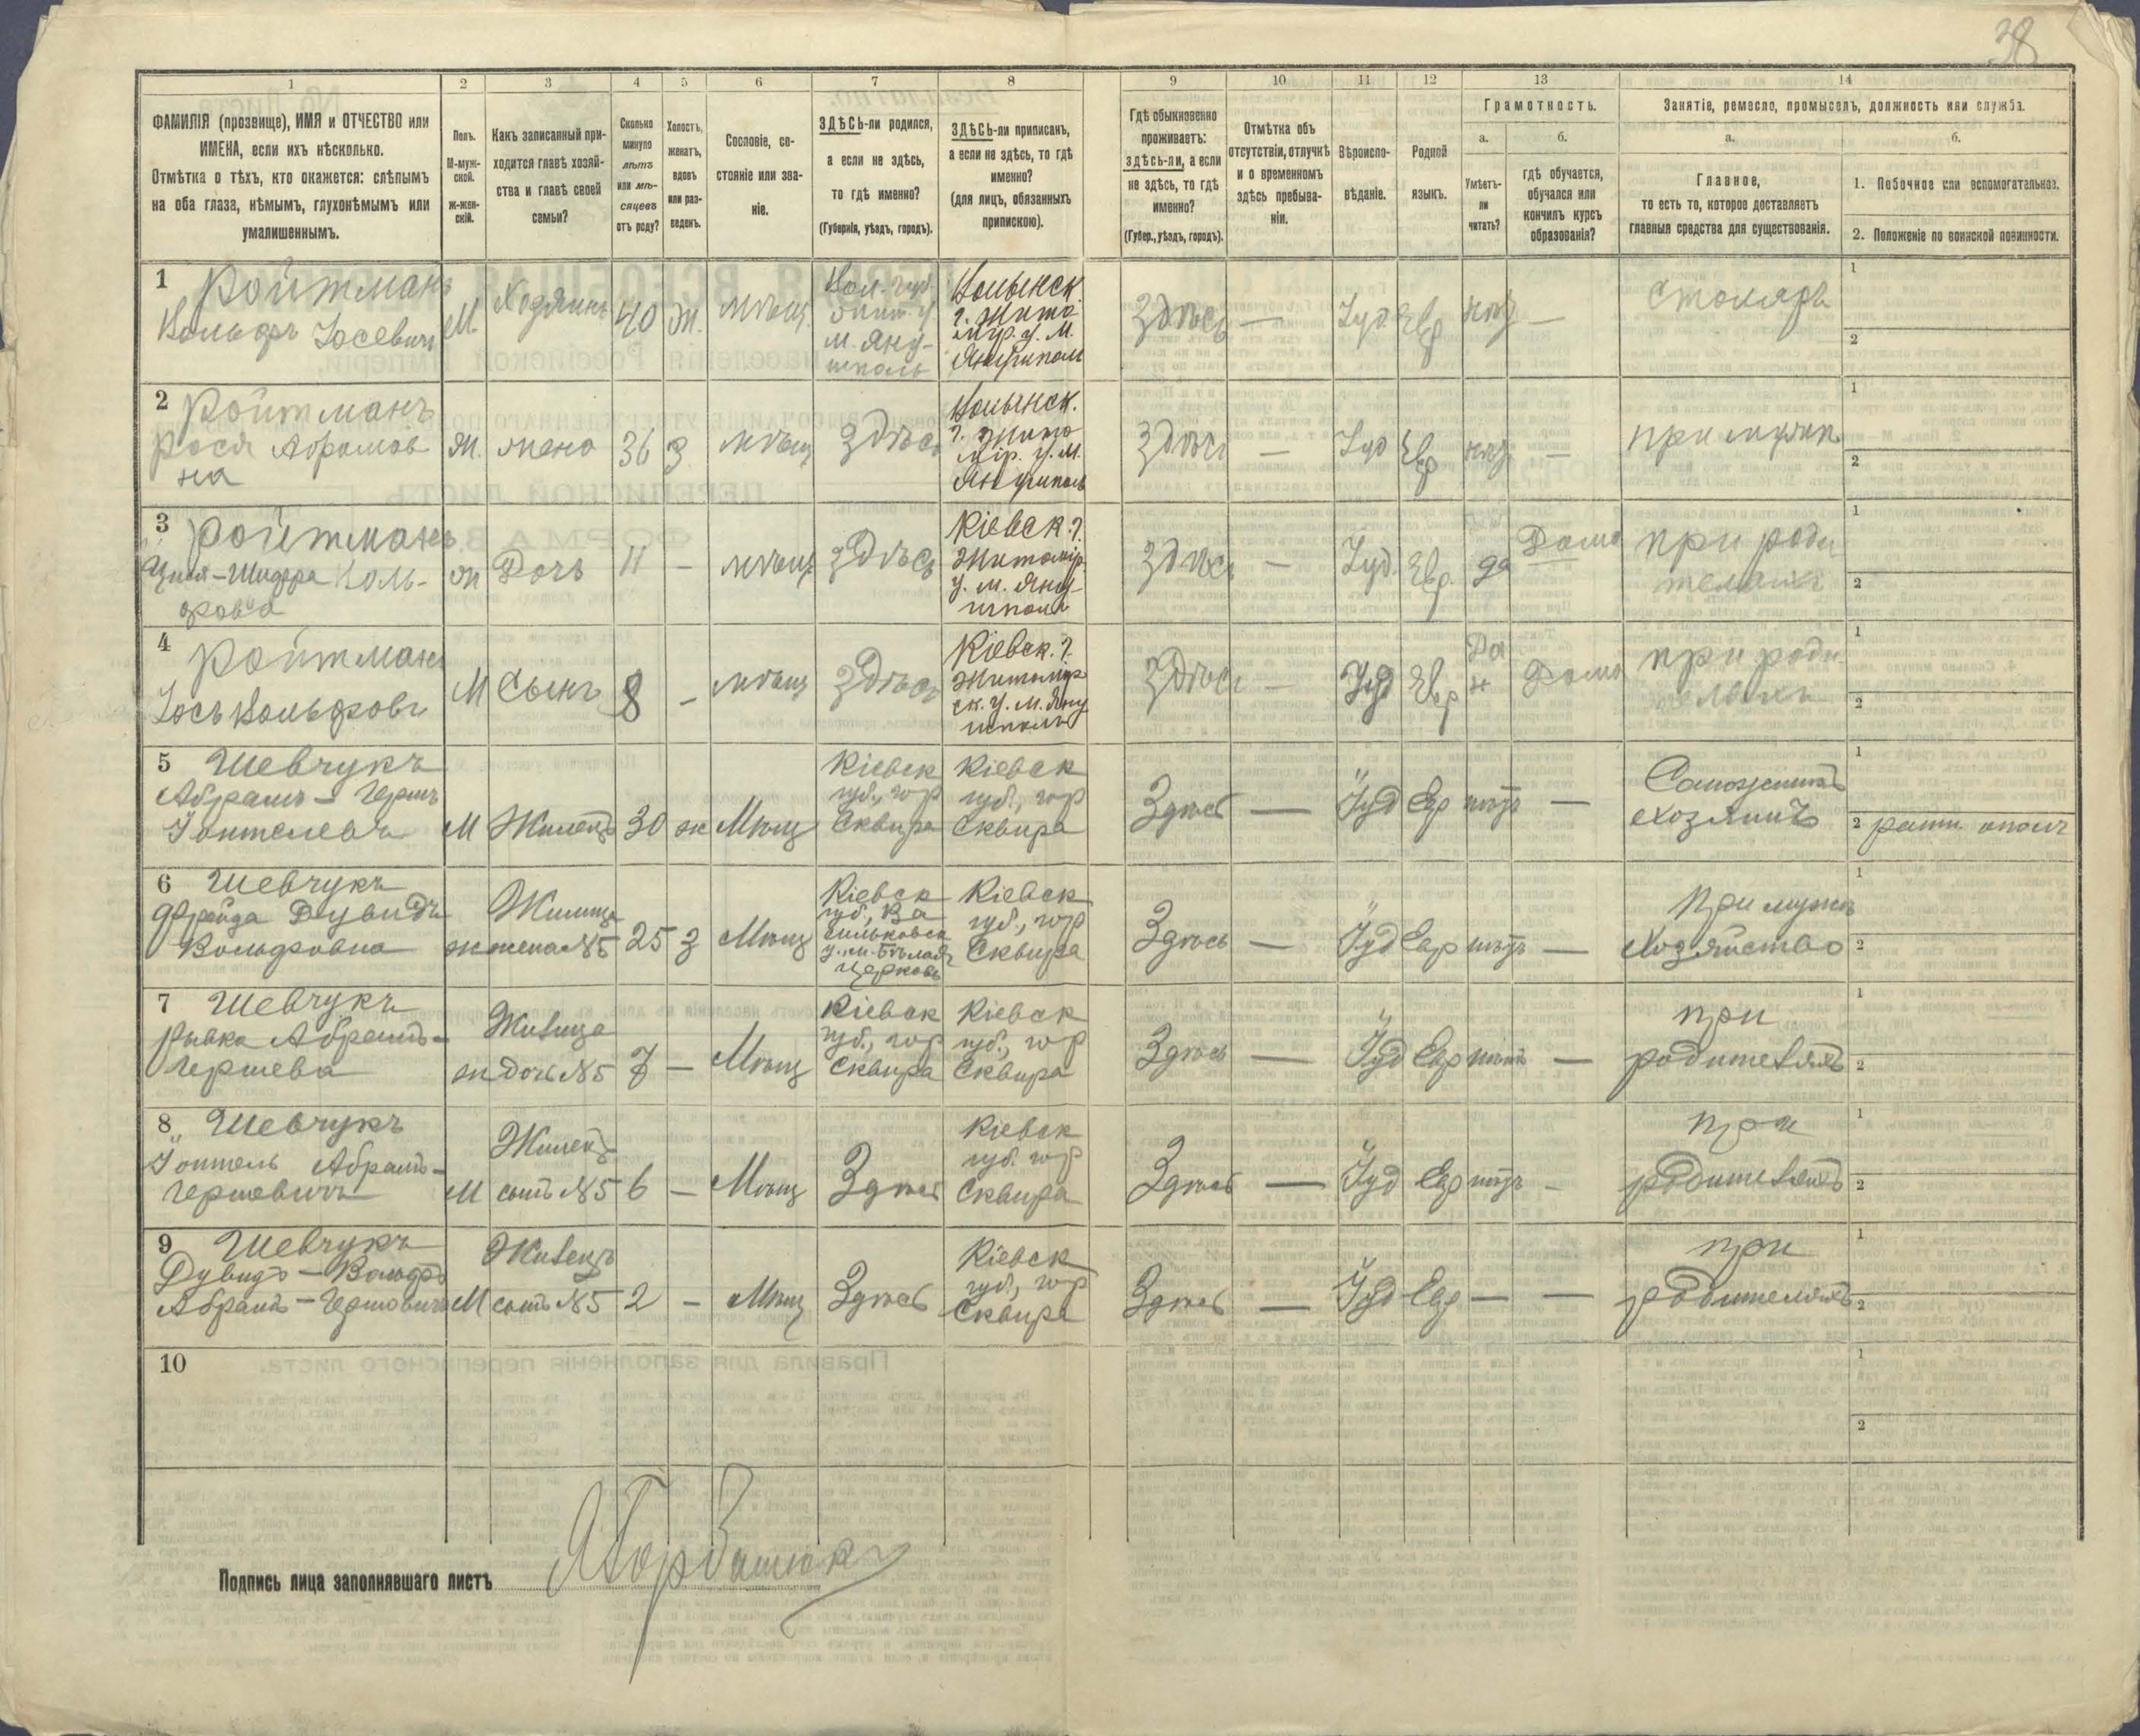 38
1
2
3
4
5
6
7
8
9
10
11
12
13
14
ФАМИЛІЯ (прозвище), ИМЯ и ОТЧЕСТВО или
ИМЕНА, если ихъ нѣсколько.
Отмѣтка о тѣхъ, кто окажется: слѣпымъ
на оба глаза, нѣмымъ, глухонѣмымъ или
умалишеннымъ.
Полъ.
М-муж-
ской.
Ж-жен-
скій.
Какъ записанный при-
ходится главѣ хозяй-
ства и главѣ своей
семьи?
Сколько
минуло
лѣтъ
или мѣ-
сяцевъ
отъ роду?
Холостъ,
женатъ,
вдовъ
или раз-
веденъ.
Сословіе, со-
стояніе или зва-
ніе.
ЗДѢСЬ-ли родился,
а если не здѣсь,
то гдѣ именно?
(Губернія, уѣздъ, городъ).
ЗДѢСЬ-ли приписанъ,
а если не здѣсь, то гдѣ
именно?
(для лицъ, обязанныхъ
припискою).
Гдѣ обыкновенно
проживаетъ:
здѣсь-ли, а если
не здѣсь, то гдѣ
именно?
(Губер., уѣздъ, городъ).
Отмѣтка объ
отсутствіи, отлучкѣ
и о временномъ
здѣсь пребыва-
ніи.
Вѣроиспо-
вѣданіе.
Родной
языкъ.
Грамотность.
а.
б.
Умѣетъ-
ли
читать?
гдѣ обучается,
обучался или
кончилъ курсъ
образованія?
Занятіе, ремесло, промыселъ, должность или служба.
а.
б.
Главное,
то есть то, которое доставляетъ
главныя средства для существованія.
1. Побочное или вспомогательное.
2. Положеніе по воинской повинности.
1 Ройтманъ
Вольфъ Іосевичъ
М.
Хозяинъ
40
ж.
мѣщ.
Вол. губ.
Жит. у.
м. Яну-
шполь
Волынск.
г. Жито
мір. у. м.
Янушполь
Здѣсь
—
Іуд.
Евр
нѣт
—
столяръ
1
2
2 Ройтманъ
Рося Абрамов
на
Ж.
жена
36
з
мѣщ
Здѣсь
Волынск.
г. Жито
мір. у. м.
Янушполь
Здѣсь
—
Іуд
Евр
нѣт
—
при мужѣ
1
2
3 Ройтманъ
Воль-
фовa
ж
Дочь
11
-
мѣщ
здѣсь
Кіевск. г.
Житомір.
у. м. Яну-
шполь
здѣсь
—
Іуд.
Евр.
да
Дома
при роди
теляхъ
1
2
4 Ройтманъ
Іось Вольфовъ
М
Сынъ
8
-
мѣщ
здѣсь
Кіевск. г.
Житомір
ск. у. м. Яну
шполь
Здѣсь
—
Іуд
Евр
Да
Дома
при роди
теляхъ
1
2
5 Шевчукъ
Абрамъ - Гершъ
М
Жилецъ
30
ж
Мѣщ
Кіевск
губ., гор
Сквира
Кіевск
губ., гор
Сквира
Здѣсь
—
Іуд
Евр
нѣтъ
—
хозяинъ
1
2 ратн. ополч
6 Шевчукъ
Фрейда Дувидъ
Вольфовна
ж
Жилица
жена №5
25
з
Мѣщ
Кіевск
губ., Ва
сильковск
у. м. Бѣлая
Церковь
Кіевск
губ., гор
Сквира
Здѣсь
—
Іуд
Евр
нѣтъ
—
при мужѣ
хозяйство
1
2
7 Шевчукъ
Рывка Абрамъ-
Гершева
ж
Жилица
дочь №5
7
—
Мѣщ
Кіевск
губ., гор
Сквира
Кіевск
губ., гор
Сквира
Здѣсь
—
Іуд
Евр
нѣтъ
—
при
родителяхъ
1
2
8 Шевчукъ
Абрамъ-
Гершевичъ
М
Жилецъ
сынъ №5
6
—
Мѣщ
Здѣсь
Кіевск
губ. гор
Сквира
Здѣсь
—
Іуд
Евр
нѣтъ
-
при
родителяхъ
1
2
9 Шевчукъ
Дувидъ-Вольфъ
Абрамъ-Гершовичъ
М
Жилецъ
сынъ №5
2
-
Мѣщ
Здѣсь
Кіевск
губ, гор
Сквира
Здѣсь
—
Іуд
Евр
—
—
при
родителяхъ
1
2
10
1
2
Подпись лица заполнявшаго листъ